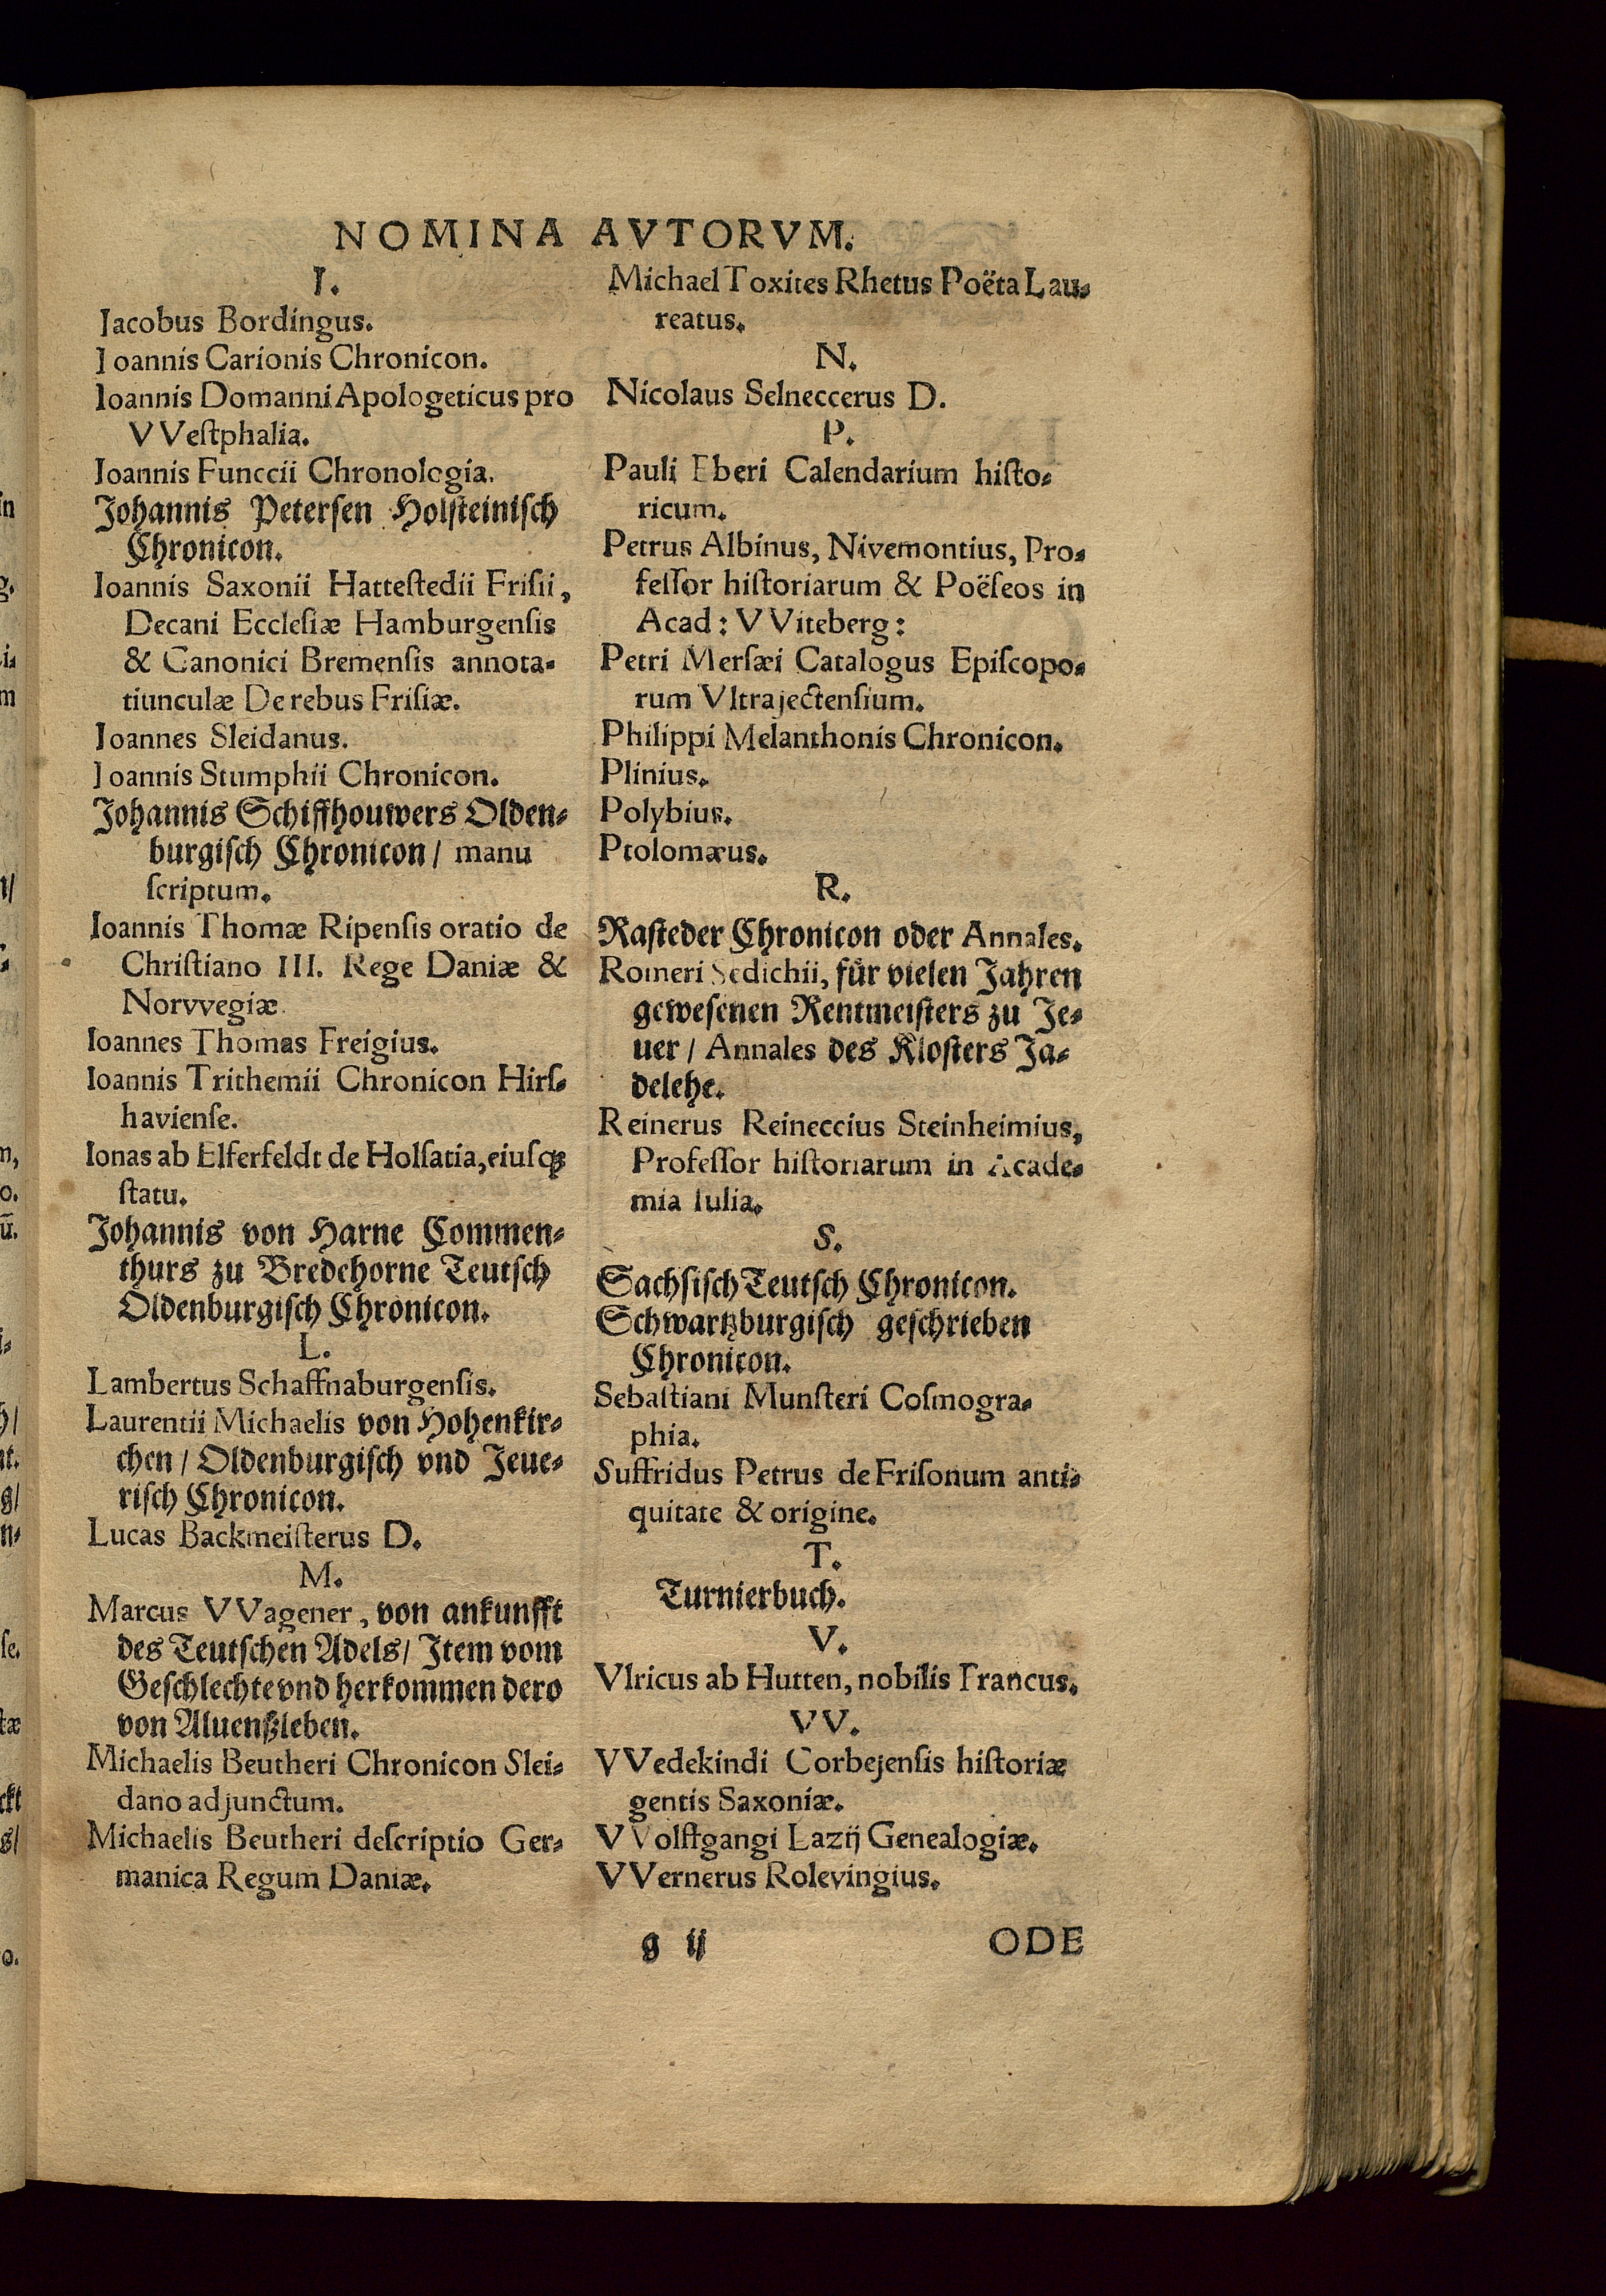 NOMINA AVTORVM.
I.
Jacobus Bordingus.
Joannis Carionis Chronicon.
Ioannis Domanni Apologeticus pro
VVeſtphalia.
Joannis Funccii Chronologia.
Johannis Peterſen Holſteiniſch
Chronicon.
Ioannis Saxonii Hatteſtedii Friſii,
Decani Eccleſiæ Hamburgenſis
& Canonici Bremenſis annota⸗
tiunculæ De rebus Friſiæ.
Joannes Sleidanus.
Joannis Stumphii Chronicon.
Johannis Schiffhouwers Olden⸗
burgiſch Chronicon / manu
ſcriptum.
Ioannis Thomæ Ripenſis oratio de
Chriſtiano III. Rege Daniæ &
Norvvegiæ.
Ioannes Thomas Freigius.
Ioannis Trithemii Chronicon Hirſ⸗
havienſe.
Ionas ab Elferfeldt de Holſatia, eiuſqꝫ
ſtatu.
Johannis von Harne Commen⸗
thurs zu Bredehorne Teutſch
Oldenburgiſch Chronicon.
L.
Lambertus Schaffnaburgenſis.
Laurentii Michaelis von Hohenkir⸗
chen / Oldenburgiſch vnd Jeue⸗
riſch Chronicon.
Lucas Backmeiſterus D.
M.
Marcus VVagener, von ankunfft
des Teutſchen Adels / Item vom
Geſchlechte vnd herkommen dero
von Aluenßleben.
Michaelis Beutheri Chronicon Slei⸗
dano adjunctum.
Michaelis Beutheri deſcriptio Ger⸗
manica Regum Daniæ.
Michael Toxites Rhetus Poëta Lau⸗
reatus.
N.
Nicolaus Selneccerus D.
P.
Pauli Eberi Calendarium hiſto⸗
ricum.
Petrus Albinus, Nivemontius, Pro⸗
feſſor hiſtoriarum & Poëſeos in
Acad: VViteberg:
Petri Merſæi Catalogus Epiſcopo⸗
rum Vltrajectenſium.
Philippi Melanthonis Chronicon.
Plinius.
Polybius.
Ptolomæus.
R.
Raſteder Chronicon oder Annales.
Romeri Sedichii, für vielen Jahren
geweſenen Rentmeiſters zu Je⸗
uer / Annales des Kloſters Ja⸗
delehe.
Reinerus Reineccius Steinheimius,
Profeſſor hiſtoriarum in Acade⸗
mia Iulia.
S.
Sachſiſch Teutſch Chronicon.
Schwartzburgiſch geſchrieben
Chronicon.
Sebaſtiani Munſteri Coſmogra⸗
phia.
Suffridus Petrus de Friſonum anti⸗
quitate & origine.
T.
Turnierbuch.
V.
Vlricus ab Hutten, nobilis Francus.
VV.
VVedekindi Corbejenſis hiſtoriæ
gentis Saxoniæ.
VVolffgangi Lazij Genealogiæ.
VVernerus Rolevingius.
g ij
ODE